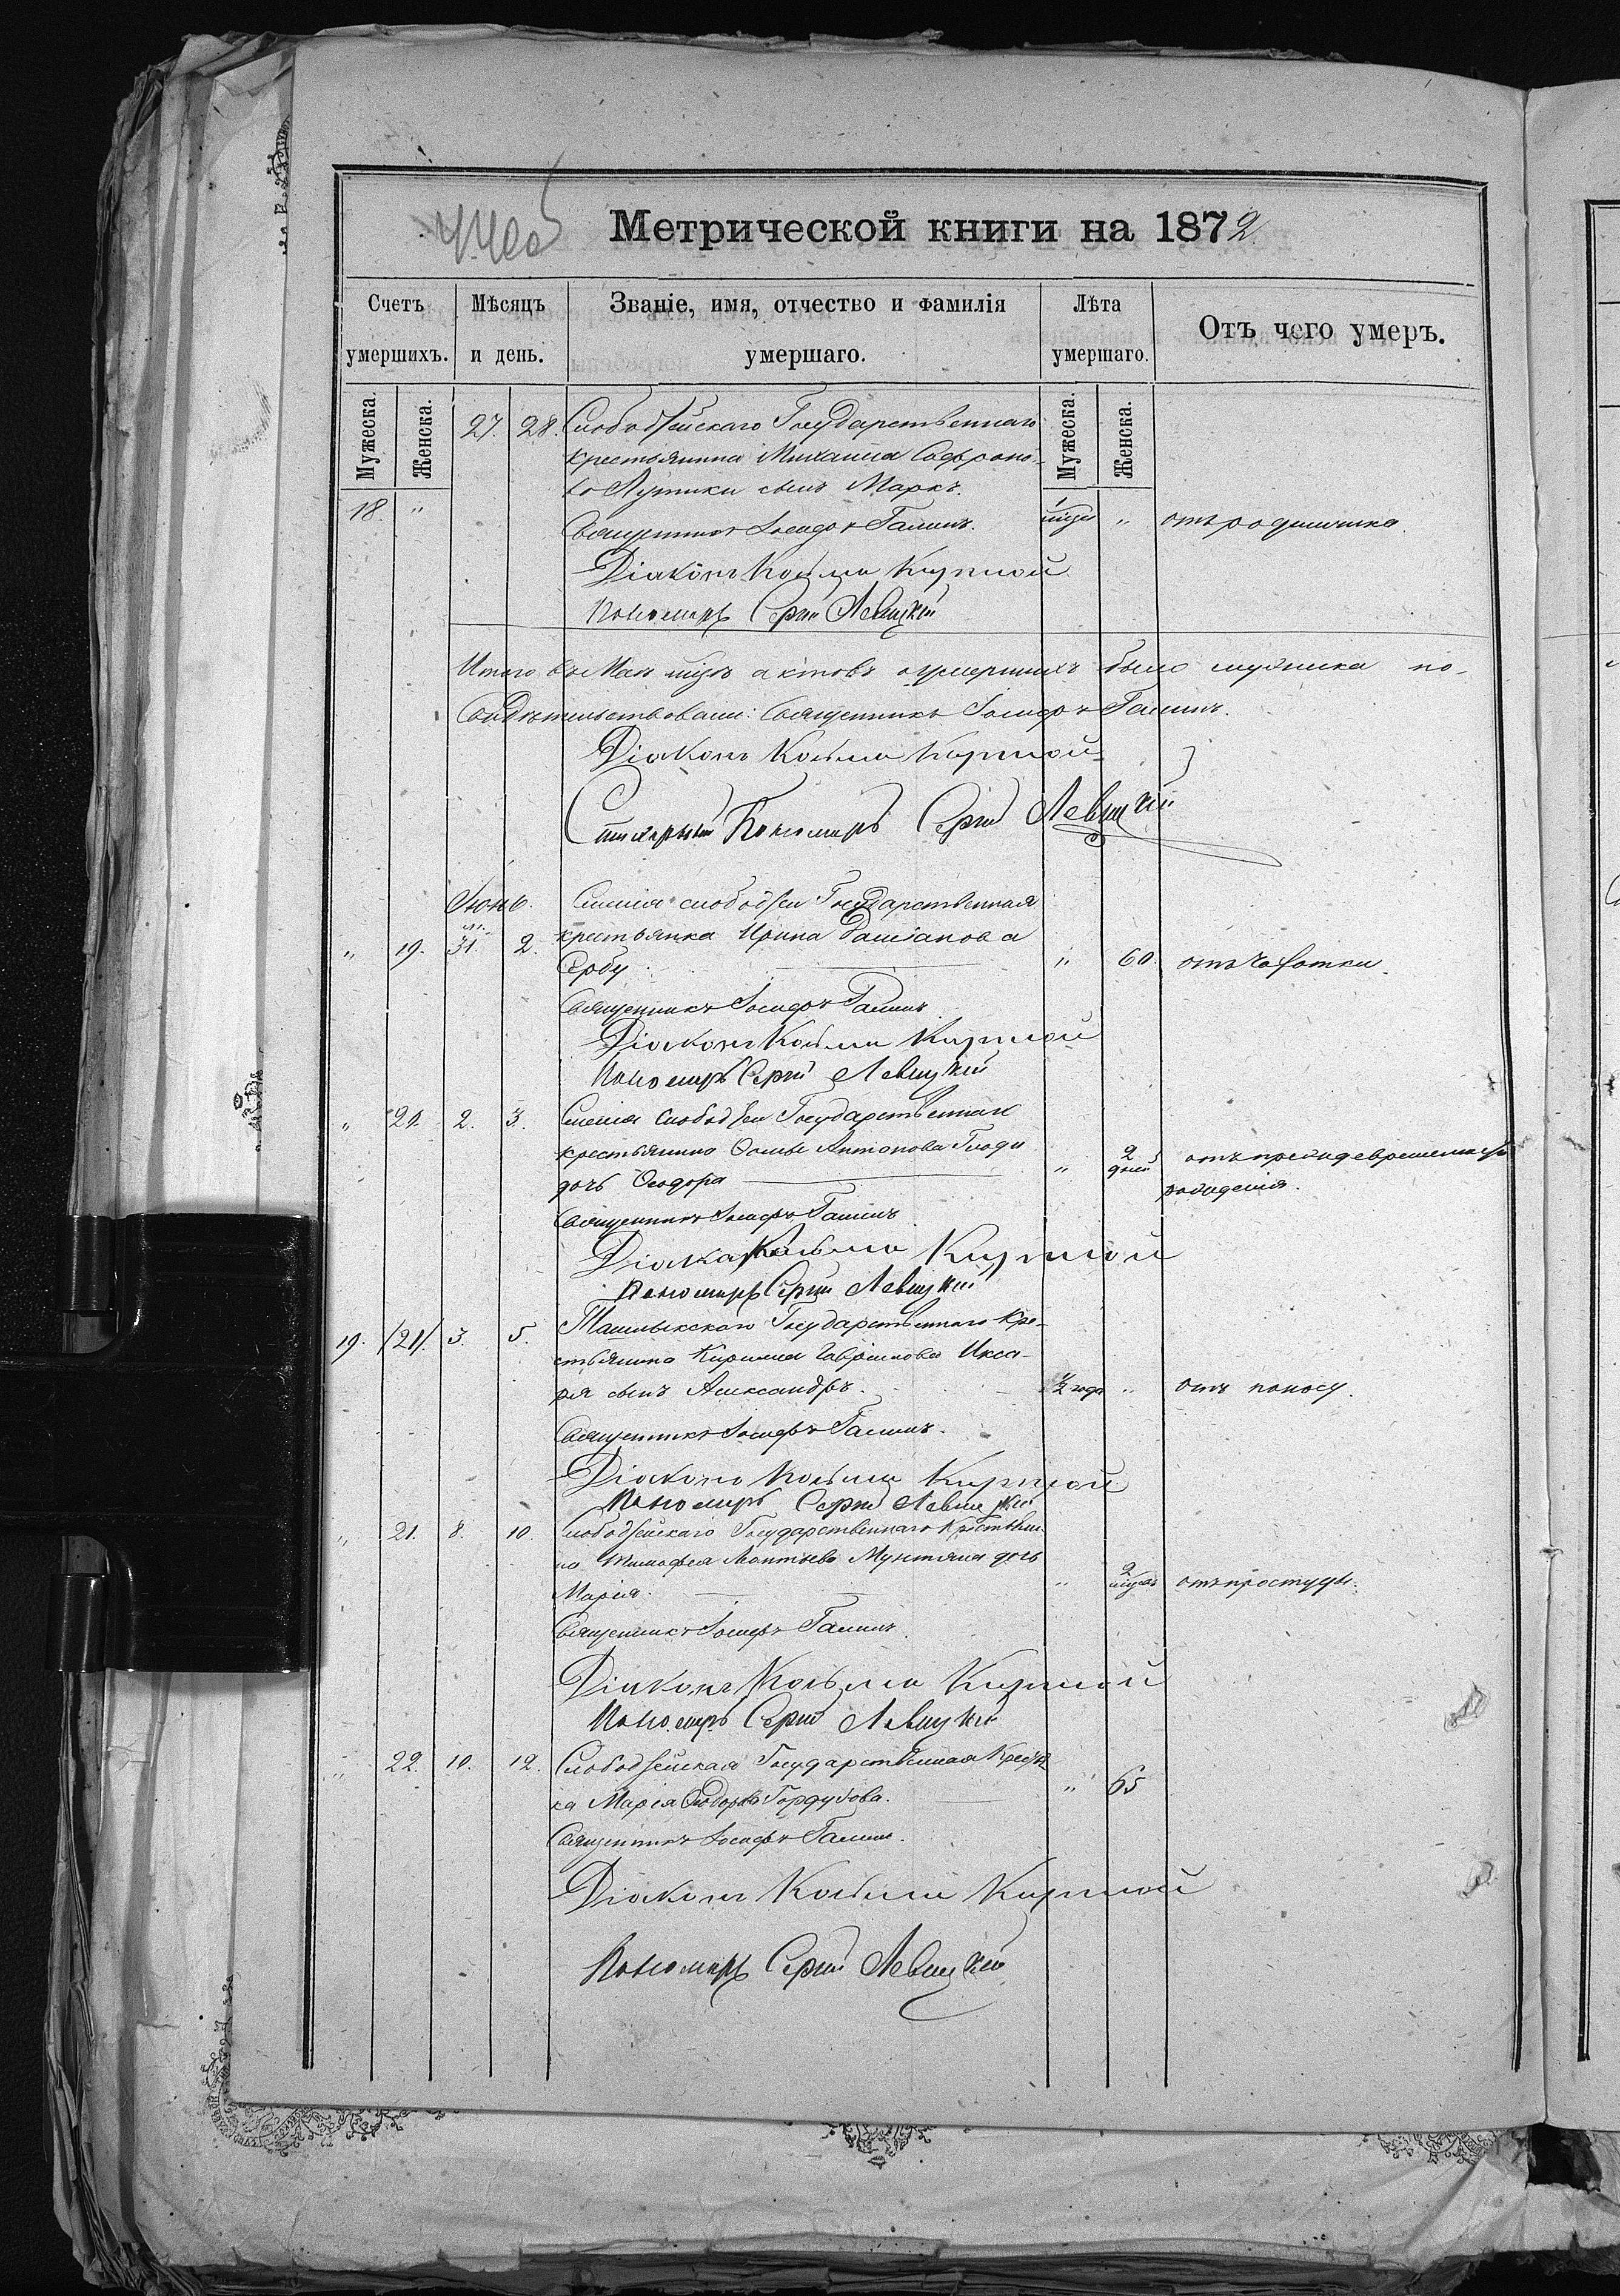 Метрической книги на 1872
Счетъ умершихъ.
Мѣсяцъ и день.
Званіе, имя, отчество и фамилія умершаго.
Лѣта умершаго.
Отъ чего умеръ.
Мужеска. Женска.
Мужеска. Женска.
27. 28. Слободзейскаго Государственнаго
крестьянина Михаила Софроно-
ва сынъ Маркъ.
18. "
Священникъ Іосифъ Галинъ. 1 " отъ родимчика.
Діаконъ Козьма
Пономарь Сергій Левицкій
Итого въ Маѣ актовъ умершихъ было
Свидѣтельствовали: Священникъ Іосифъ Галинъ.
Діаконъ Козьма
Стихарный Пономарь Сергій Левицкій
Іюнь. Селенія Слободзеи Государственная
" 19. 31. 2. крестьянка Ирина
Сербу " 60. отъ чахотки.
Священникъ Іосифъ Галинъ
Діаконъ Козьма
Пономарь Сергій Левицкій
" 20. 2. 3. Селенія Слободзеи Государственнаго
крестьянина Антонова
дочь Ѳеодора " 2 дней отъ преждевременнаго
рожденія.
Священникъ Іосифъ Галинъ
Діаконъ Козьма
Пономарь Сергій Левицкій
19. /21/. 3. 5. Ташлыкскаго Государственнаго Кре-
стьянина Кирилла
сынъ Александръ. ½ года " отъ поносу.
Священникъ Іосифъ Галинъ.
Діаконъ Козьма
Пономарь Сергій Левицкій
" 21. 8. 10. Слободзейскаго Государственнаго Крестьяни-
на Тимофея Леонтьева Мунтяна дочь
Марія. " 2 отъ простуды.
Священникъ Іосифъ Галинъ
Діаконъ Козьма
Пономарь Сергій Левицкій
" 22. 10. 12. Слободзейская Государственная
ка Марія " 65
Священникъ Іосифъ Галинъ.
Діаконъ Козьма
Пономарь Сергій Левицкій